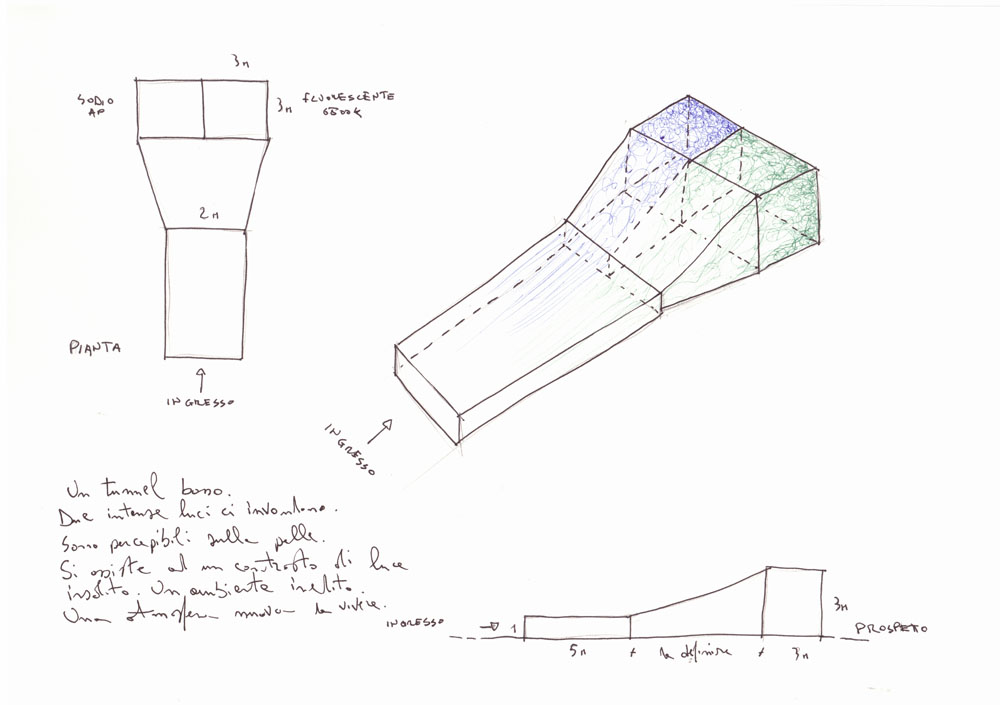 3m
SODIO
AP
3m
FLUORESCENTE
6500K
2m
PIANTA
INGRESSO
INGRESSO
Un tunnel basso.
Due intense luci ci invondono.
Sono percepibili sulla pelle.
Si assiste ad un contrasto di luce
insolito. Un ambiente inedito.
Una atmosfera nuova da vivere.
INGRESSO
1
3m
PROSPETO
5m
da definire
3m